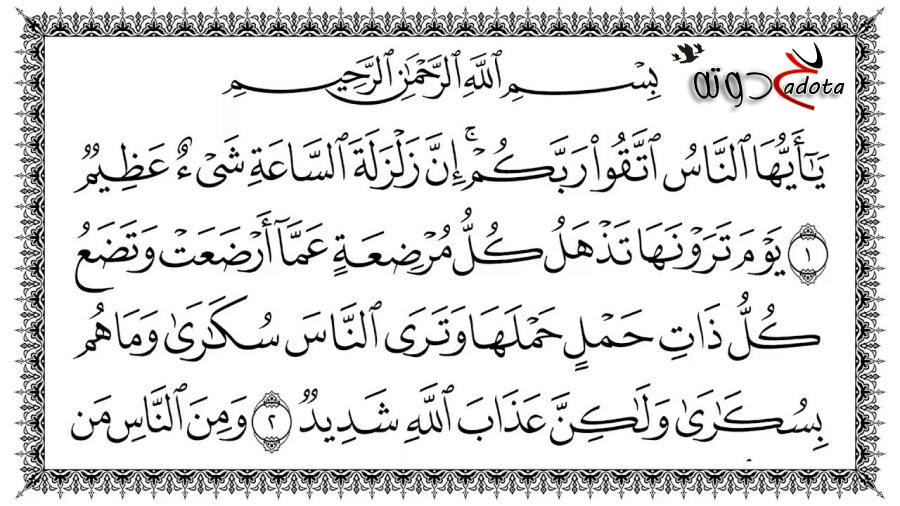 بِسْمِ ٱللَّهِ ٱلرَّحْمَٰنِ ٱلرَّحِيمِ
حدوته
adota
يَٰٓأَيُّهَا ٱلنَّاسُ ٱتَّقُوا۟ رَبَّكُمْ ۚ إِنَّ زَلْزَلَةَ ٱلسَّاعَةِ شَىْءٌ عَظِيمٌ
١ يَوْمَ تَرَوْنَهَا تَذْهَلُ كُلُّ مُرْضِعَةٍ عَمَّآ أَرْضَعَتْ وَتَضَعُ
كُلُّ ذَاتِ حَمْلٍ حَمْلَهَا وَتَرَى ٱلنَّاسَ سُكَٰرَىٰ وَمَا هُم
بِسُكَٰرَىٰ وَلَٰكِنَّ عَذَابَ ٱللَّهِ شَدِيدٌ ٢ وَمِنَ ٱلنَّاسِ مَن